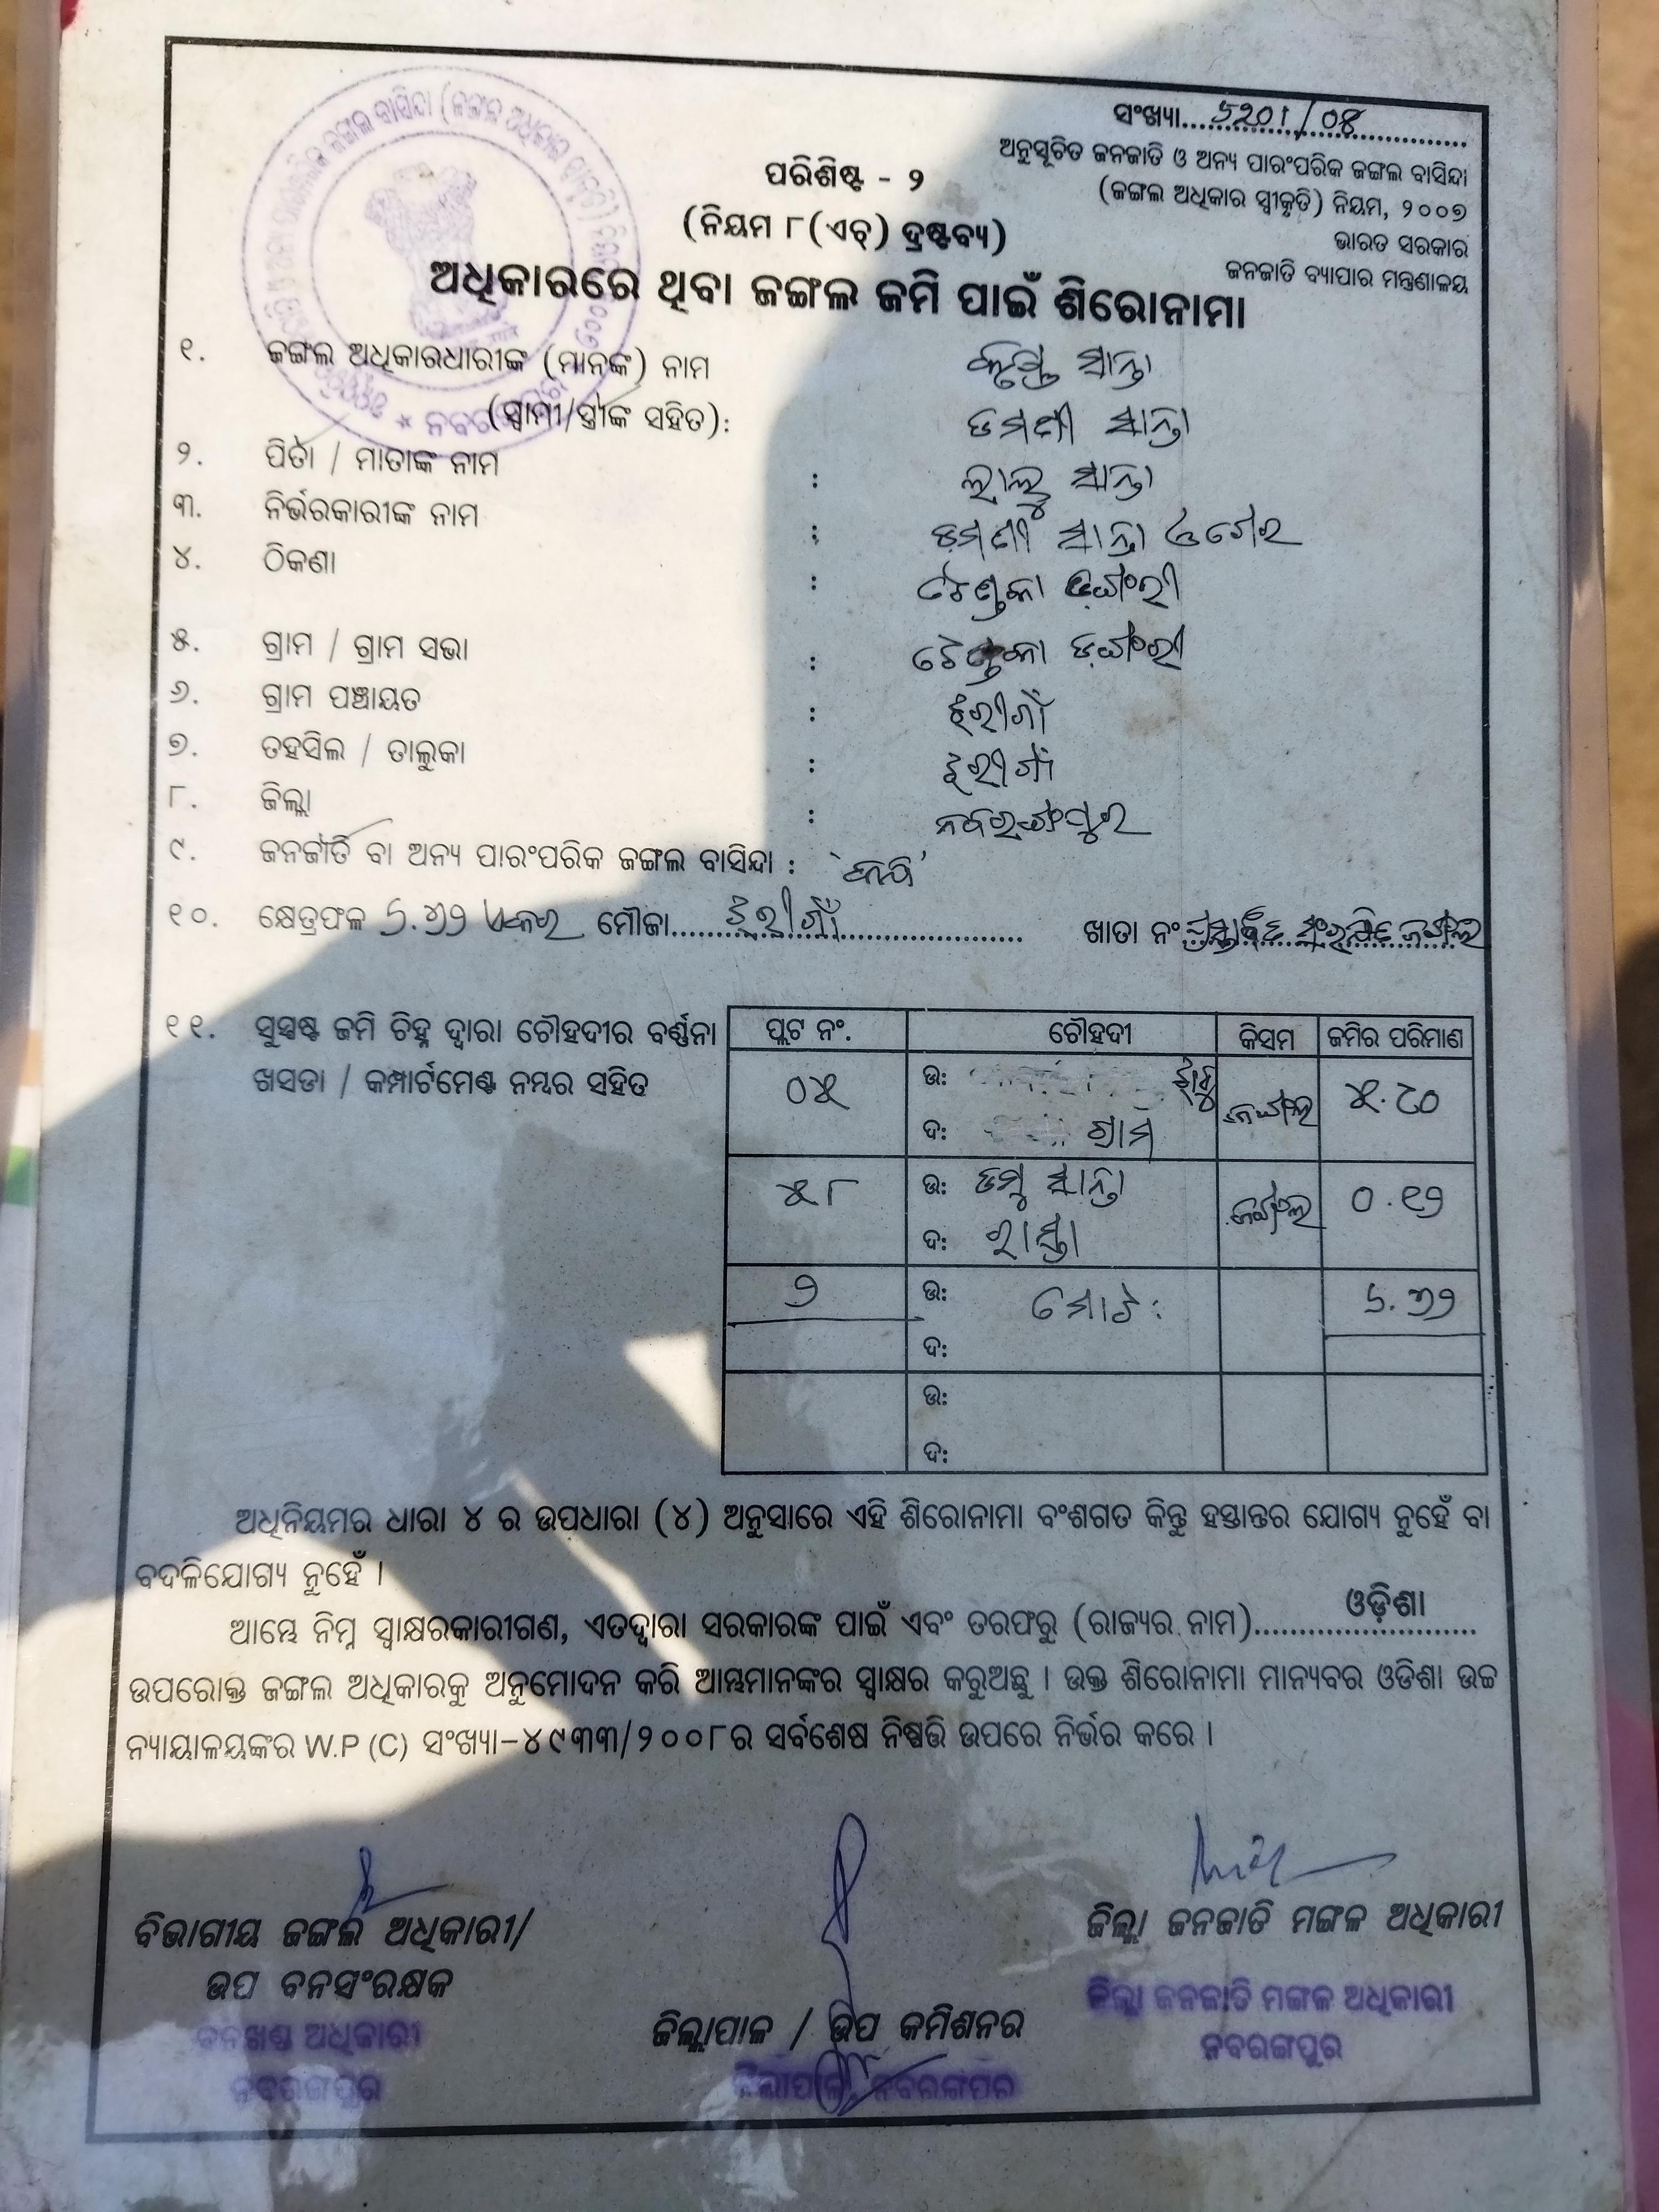 ସଂଖ୍ୟା....୨୦୧/୦୪
ଅନୁସୂଚିତ ଜନଜାତି ଓ ଅନ୍ୟ ପାରଂପରିକ ଜଙ୍ଗଲ ବାସିନ୍ଦା
(ଜଙ୍ଗଲ ଅଧିକାର ସ୍ୱୀକୃତି) ନିୟମ, ୨୦୦୭
ଭାରତ ସରକାର
ଜନଜାତି ବ୍ୟାପାର ମନ୍ତ୍ରଣାଳୟ
ପରିଶିଷ୍ଟ - ୨
(ନିୟମ ୮(ଏଚ୍) ଦ୍ରଷ୍ଟବ୍ୟ)
ଅଧିକାରରେ ଥିବା ଜଙ୍ଗଲ ଜମି ପାଇଁ ଶିରୋନାମା
୧. ଜଙ୍ଗଲ ଅଧିକାରଧାରୀଙ୍କ (ମାନଙ୍କ) ନାମ
(ସ୍ୱାମୀ/ସ୍ତ୍ରୀଙ୍କ ସହିତ): ଡମଣୀ ସାନ୍ତା
୨. ପିତା / ମାତାଙ୍କ ନାମ : ଲାଲୁ ସାନ୍ତା
୩. ନିର୍ଭରକାରୀଙ୍କ ନାମ : ଡମଣୀ ସାନ୍ତା ଓଗେର
୪. ଠିକଣା :
୫. ଗ୍ରାମ / ଗ୍ରାମ ସଭା :
୬. ଗ୍ରାମ ପଞ୍ଚାୟତ : ଝରୀଗାଁ
୭. ତହସିଲ / ତାଲୁକା : ଝରୀଗାଁ
୮. ଜିଲ୍ଲା : ନବରଙ୍ଗପୁର
୯. ଜନଜାତି ବା ଅନ୍ୟ ପାରଂପରିକ ଜଙ୍ଗଲ ବାସିନ୍ଦା :
୧୦. କ୍ଷେତ୍ରଫଳ ୬.୩୨ ଏକର ମୌଜା....ଝରୀଗାଁ.... ଖାତା ନଂ ପ୍ରସ୍ତାବିତ ସଂରକ୍ଷିତ ଜଙ୍ଗଲ
୧୧. ସୁସ୍ପଷ୍ଟ ଜମି ଚିହ୍ନ ଦ୍ୱାରା ଚୌହଦୀର ବର୍ଣ୍ଣନା
ଖସଡା / କମ୍ପାର୍ଟମେଣ୍ଟ ନମ୍ବର ସହିତ
ପ୍ଲଟ ନଂ. ଚୌହଦୀ କିସମ ଜମିର ପରିମାଣ
୦୪ ଉଃ ଜଙ୍ଗଲ ୫.୯୦
ଦଃ ଗ୍ରାମ
୪୮ ଉଃ ଡମ୍ବୁ ସାନ୍ତା ଜଙ୍ଗଲ ୦.୧୨
ଦଃ ରାସ୍ତା
୨ ଉଃ ମୋଟ: ୬.୩୨
ଦଃ
ଉଃ
ଦଃ
ଅଧିନିୟମର ଧାରା ୪ ର ଉପଧାରା (୪) ଅନୁସାରେ ଏହି ଶିରୋନାମା ବଂଶଗତ କିନ୍ତୁ ହସ୍ତାନ୍ତର ଯୋଗ୍ୟ ନୁହେଁ ବା
ବଦଳିଯୋଗ୍ୟ ନୁହେଁ ।
ଆମ୍ଭେ ନିମ୍ନ ସ୍ୱାକ୍ଷରକାରୀଗଣ, ଏତଦ୍ୱାରା ସରକାରଙ୍କ ପାଇଁ ଏବଂ ତରଫରୁ (ରାଜ୍ୟର ନାମ)....ଓଡ଼ିଶା....
ଉପରୋକ୍ତ ଜଙ୍ଗଲ ଅଧିକାରକୁ ଅନୁମୋଦନ କରି ଆମ୍ଭମାନଙ୍କର ସ୍ୱାକ୍ଷର କରୁଅଛୁ । ଉକ୍ତ ଶିରୋନାମା ମାନ୍ୟବର ଓଡିଶା ଉଚ୍ଚ
ନ୍ୟାୟାଳୟଙ୍କର W.P (C) ସଂଖ୍ୟା-୪୯୩୩/୨୦୦୮ର ସର୍ବଶେଷ ନିଷ୍ପତ୍ତି ଉପରେ ନିର୍ଭର କରେ ।
ବିଭାଗୀୟ ଜଙ୍ଗଲ ଅଧିକାରୀ/
ଉପ ବନସଂରକ୍ଷକ
ବନଖଣ୍ଡ ଅଧିକାରୀ
ନବରଙ୍ଗପୁର
ଜିଲ୍ଲାପାଳ / ଉପ କମିଶନର
ଜିଲ୍ଲାପାଳ, ନବରଙ୍ଗପୁର
ଜିଲ୍ଲା ଜନଜାତି ମଙ୍ଗଳ ଅଧିକାରୀ
ଜିଲ୍ଲା ଜନଜାତି ମଙ୍ଗଳ ଅଧିକାରୀ
ନବରଙ୍ଗପୁର